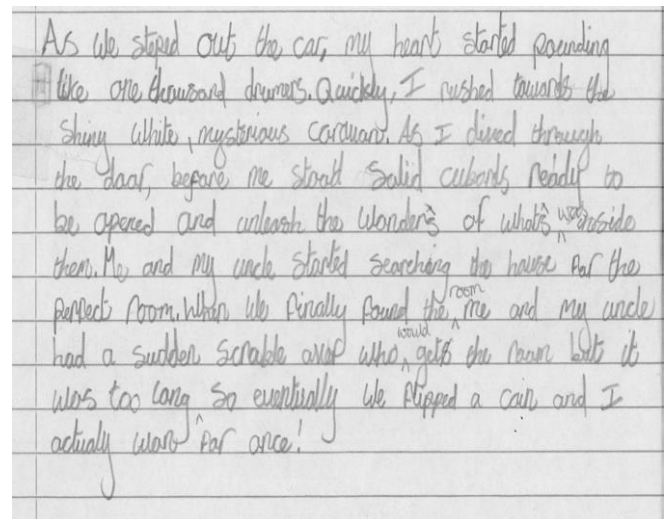 As we steped out the car, my heart started pounding
like one thousand drumers. Quickly, I rushed towards the
shiny white, mysterious caravan. As I dived through
the door, before me stood solid cubards ready to
be opened and unleash the wonders of what's was inside
them. Me and my uncle started searching the house for the
perfect room. When we finally found the room me and my uncle
had a sudden scrable over who would gets the room but it
was too long so eventually we flipped a coin and I
actualy won for once!